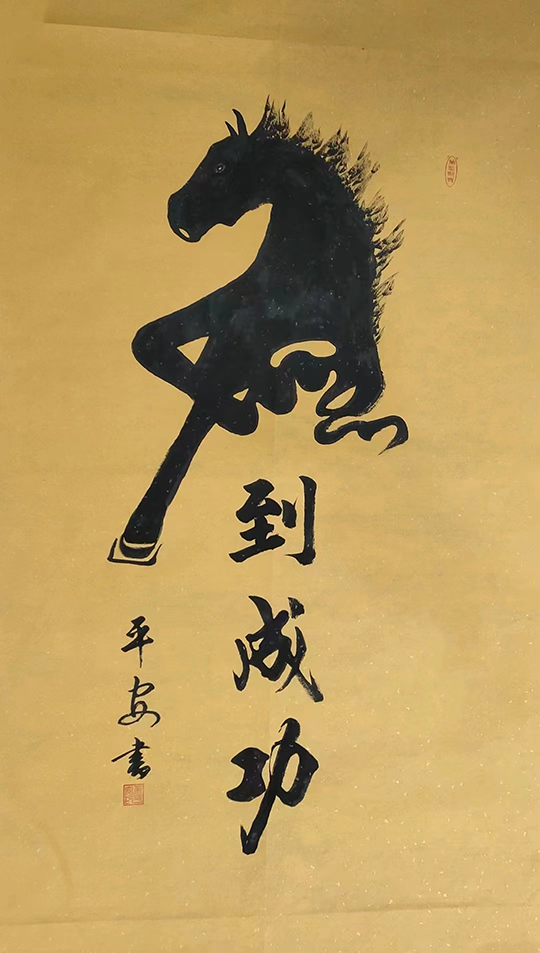 到成功
平安書